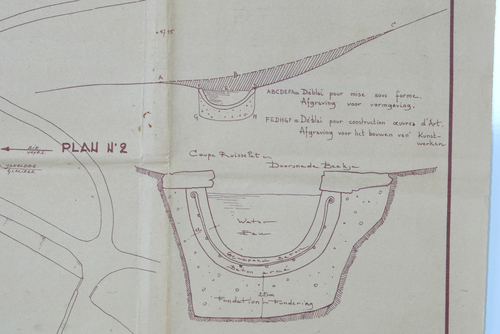 C
A
B
G
H
ABCDEFA = Déblai pour mise sous forme.
Afgraving voor vormgeving.
FGDHGF = Déblai pour construction œuvres d'Art.
Afgraving voor het bouwen van Kunst-
werken
PLAN N°2
Coupe Ruisselet
Doorsnede Beekje
Water
Eau
Gewapend Beton
Beton armé
Fondation - Fundering